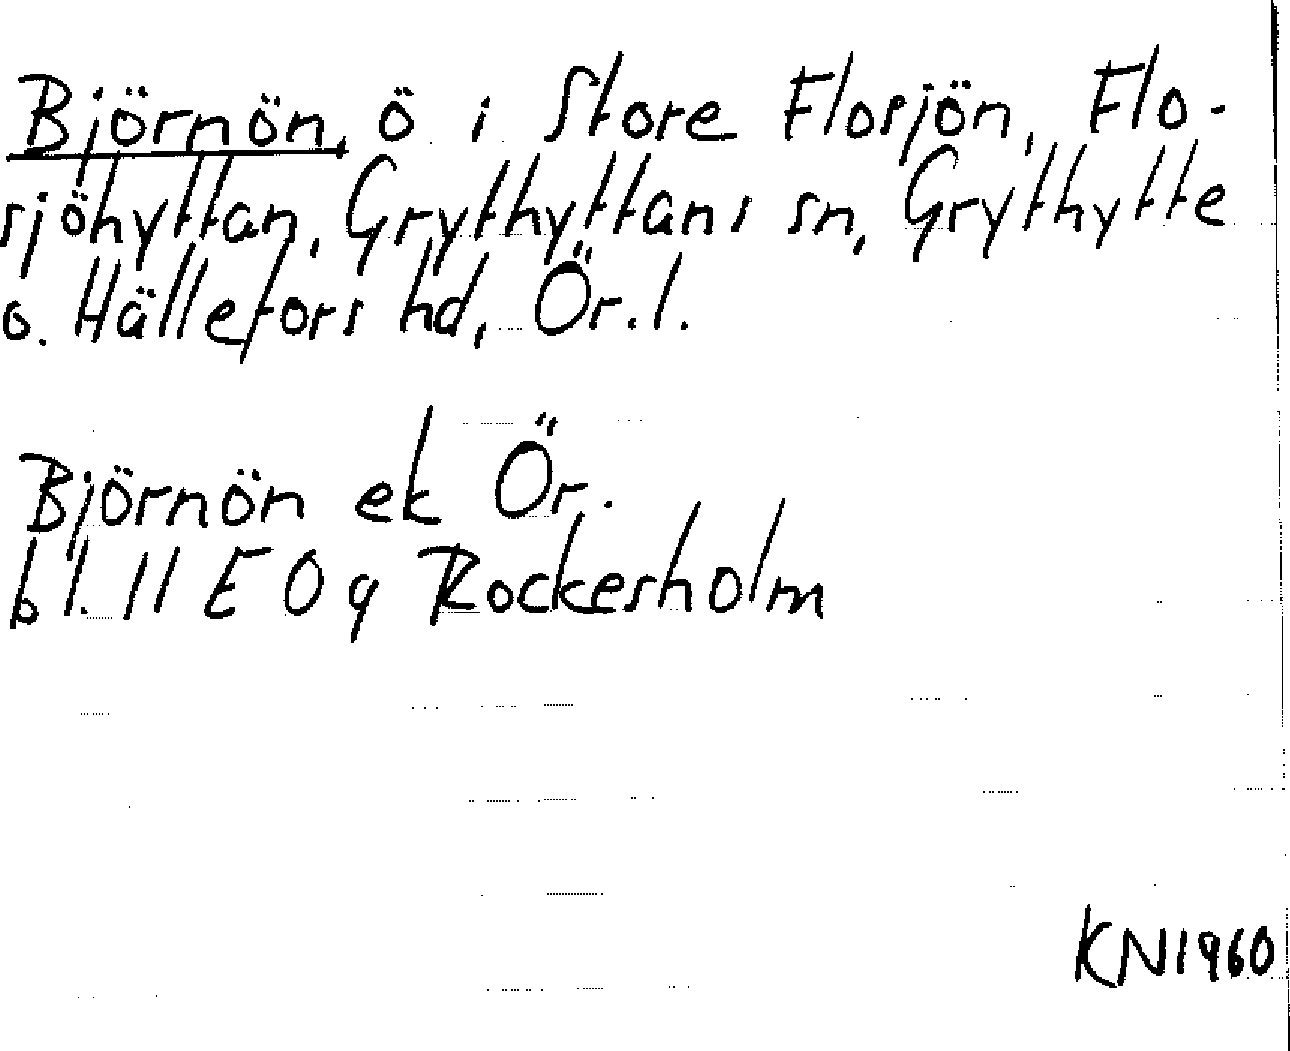 Björnön, ö i Store Flosjön, Flo-
sjöhyttan, Grythyttans sn, Grythytte
o. Hällefors hd, Ör.l.
Björnön ek Ör.
bl. 11 E 0 9 Rockesholm
KN1960